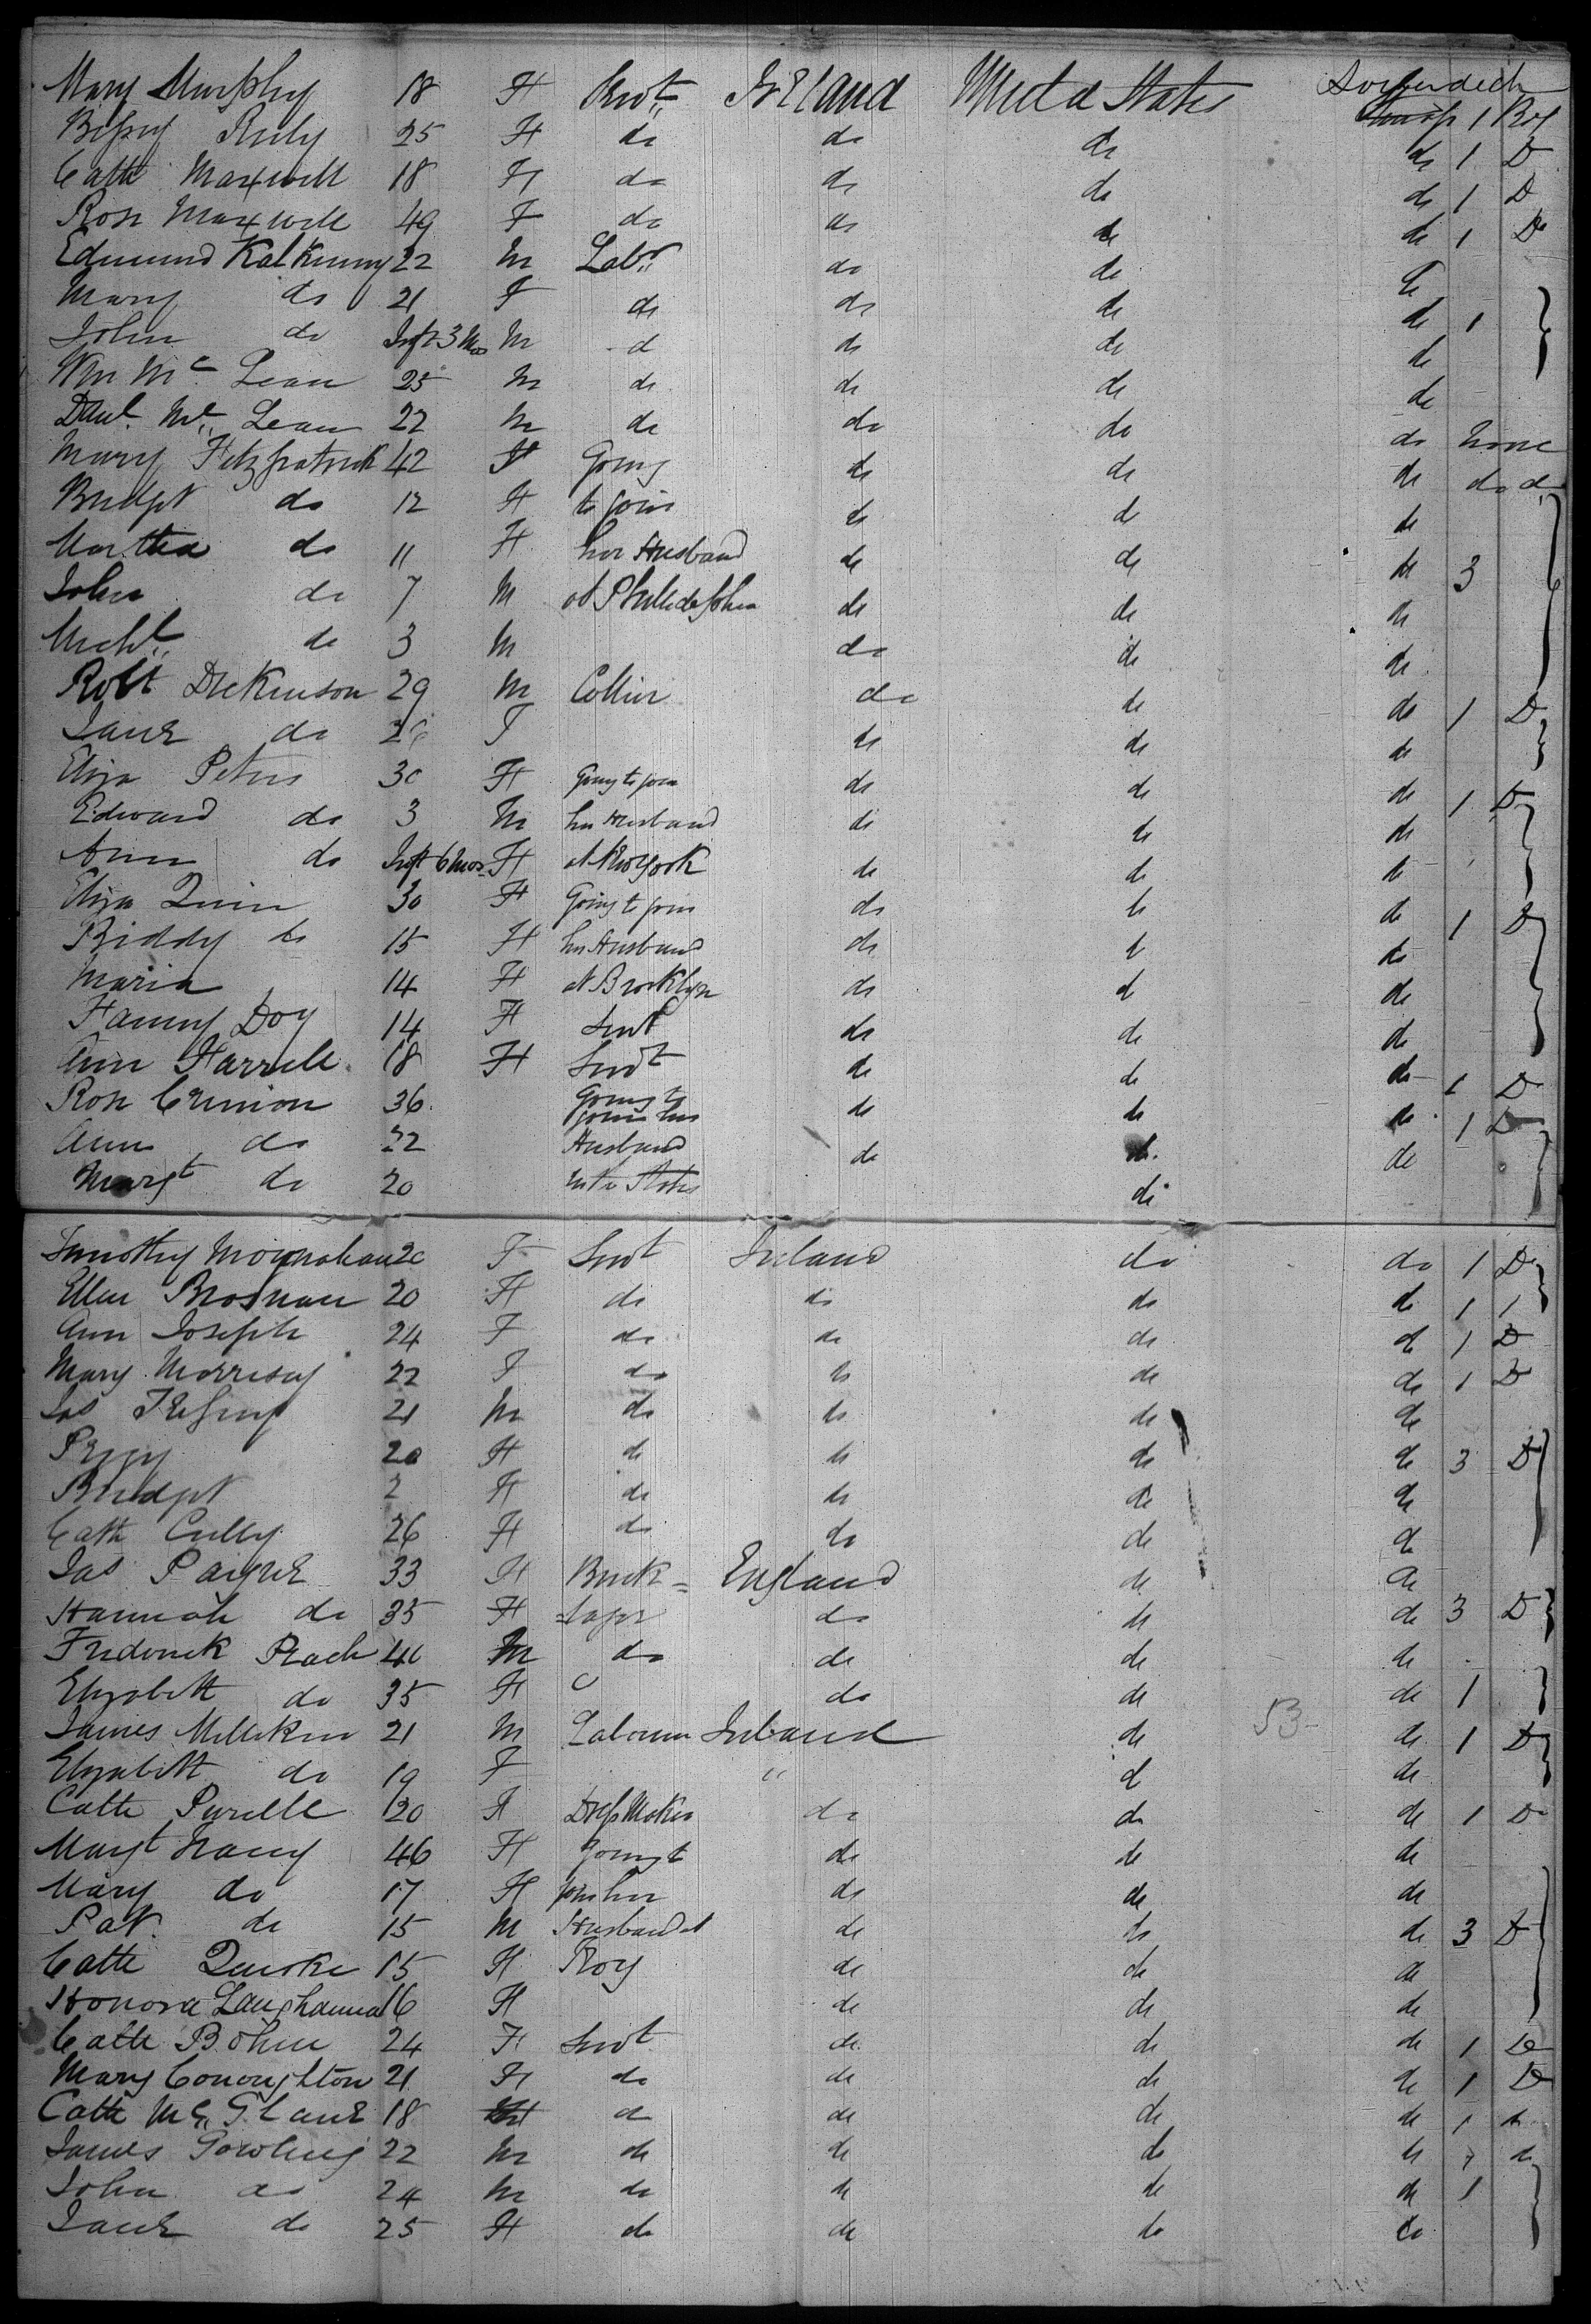 Mary Murphy 18 F Servt Ireland United States 1 Box
Bessy Riely 25 F do do do do 1 D
Cath Maxwell 18 F do do do do 1 D
Rose Maxwell 49 F do do do do 1 Do
Edmund Kalkenny 22 M Labr do do do
Mary do 21 F do do do do 1
John do Inft 3 Mos M d do do do
Wm Mc Lean 25 M do do do do
Danl. Mc Lean 22 M do do do do None
Mary Fitzpatrick 42 F Going do do do do do
Bridget do 12 F to join do do do
Martha do 11 F her Husband do do do 3
John do 7 M at Philledelphia do do do
Michl. do 3 M do do do
Robt Dickenson 29 M Collier do do do 1 D
Jane do F do do do
Eliza Peters 30 F Going to join do do do 1 D
Edward do 3 M her Husband do do do
Ann do Inft 6 mos F at New York do do do
Eliza Quin 30 F Going to join do do do 1 D
Biddy do 15 F her Husband do do do
Maria 14 F at Brooklyn do do do
Fanny Doy 14 F Servt do do do
Ann Farrell 18 F Servt do do do 1 D
Rose Crinion 36 Going to join her do do do 1 D
Ann do 22 Husband do do do
Margt do 20 States do
Timothy Moynahan 20 F Servt Ireland do do 1 D
Ellen Brosnan 20 F do do do do 1 1
Ann Joseph 24 F do do do do 1 D
Mary Morrisey 22 F do do do do 1 D
Jas 21 M do do do do
Peggy 20 F do do do do 3 D
Bridget 2 F do do do do
Cath Cully 26 F do do do do
Jas Paigne 33 F Brick = England do do
Hannah do 35 F do do do 3 D
Frederick Peach 40 M do do do do
Elizabeth do 35 F do do do 1
James Milliken 21 M Labourer Ireland do 53 do 1 D
Elizabeth do 19 F " d do
Cath Purcell 20 F Dress Maker do do do 1 D
Margt 46 F going to do do do
Mary do 17 F join her do do do
Pat do 15 M Husband at do do do 3 D
Cath Quirke 15 F Troy do do do
Honora 16 F do do do
Cath Bohen 24 F Servt do do do 1 D
Mary Conoughton 21 F do do do do 1 D
Cath Mc Glane 18 d do do do 1 do
James Gowling 22 M do do do do do
John do 24 M do do do do 1
Jane do 25 F do do do do